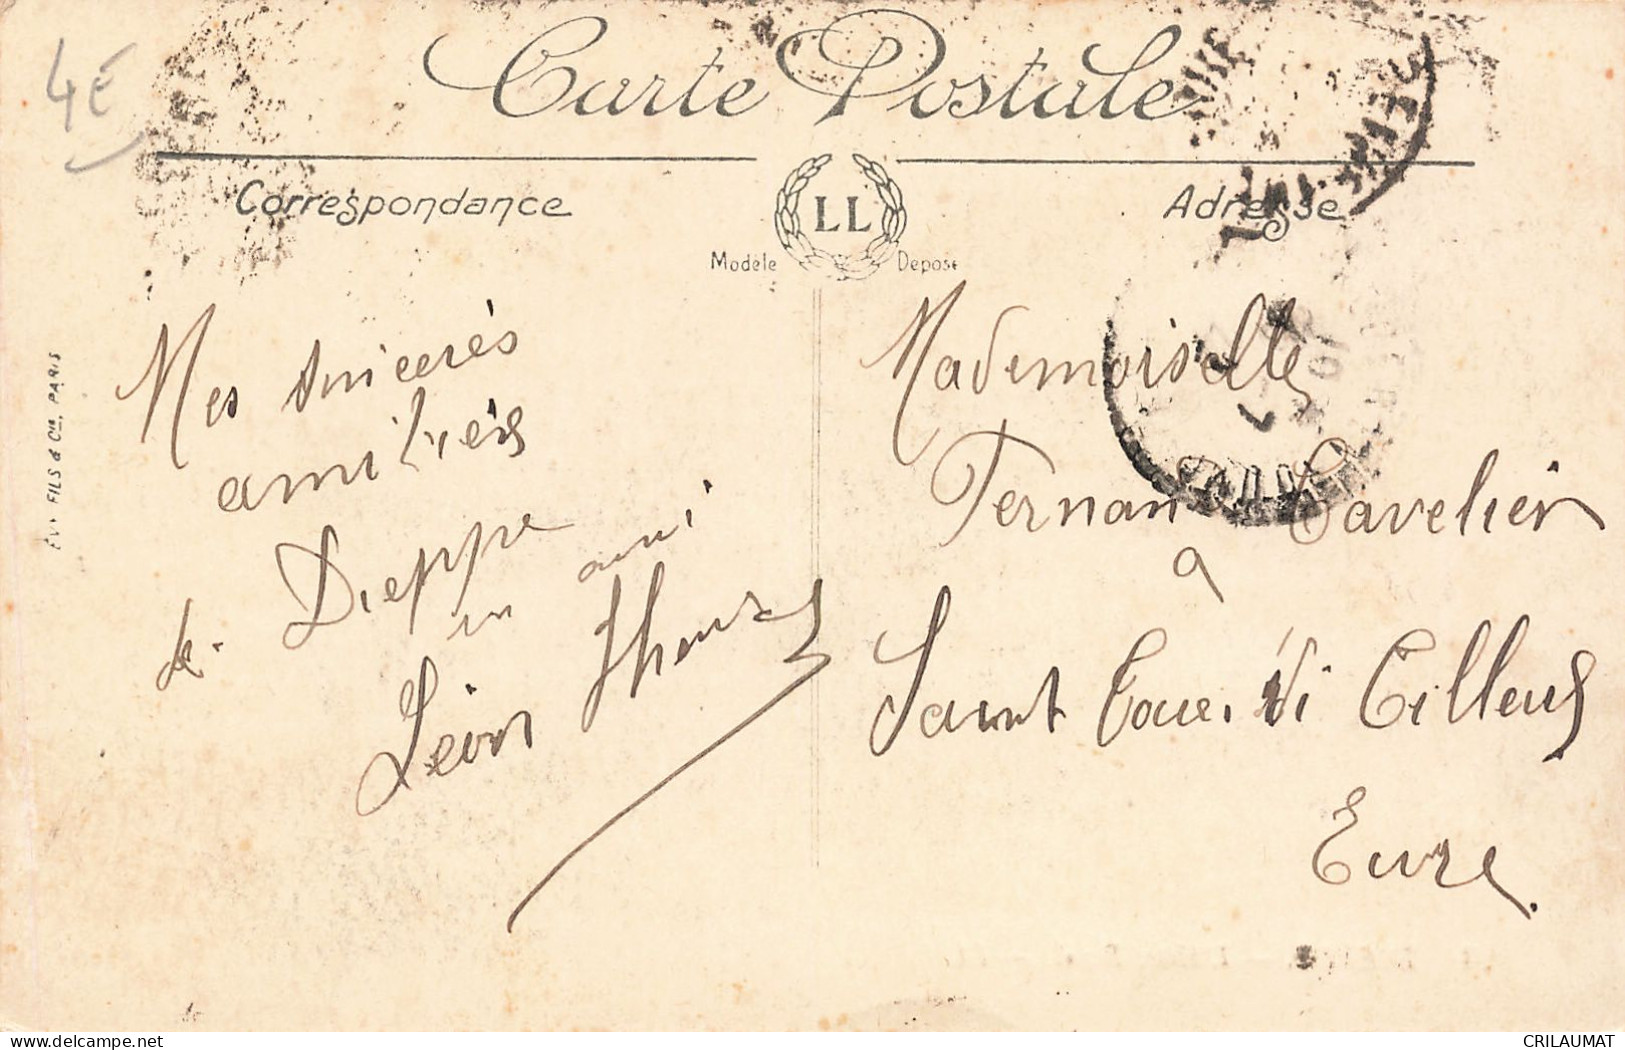 4€
Carte Postale
Correspondance
LL
Modèle Déposé
Adresse
LÉVY FILS & Cie, PARIS
Mes sincerès
amitiés
de Dieppe
un ami
Léon
Mademoiselle
Fernan Cavelier
a
Saint
Eure
delcampe.net
CRILAUMAT